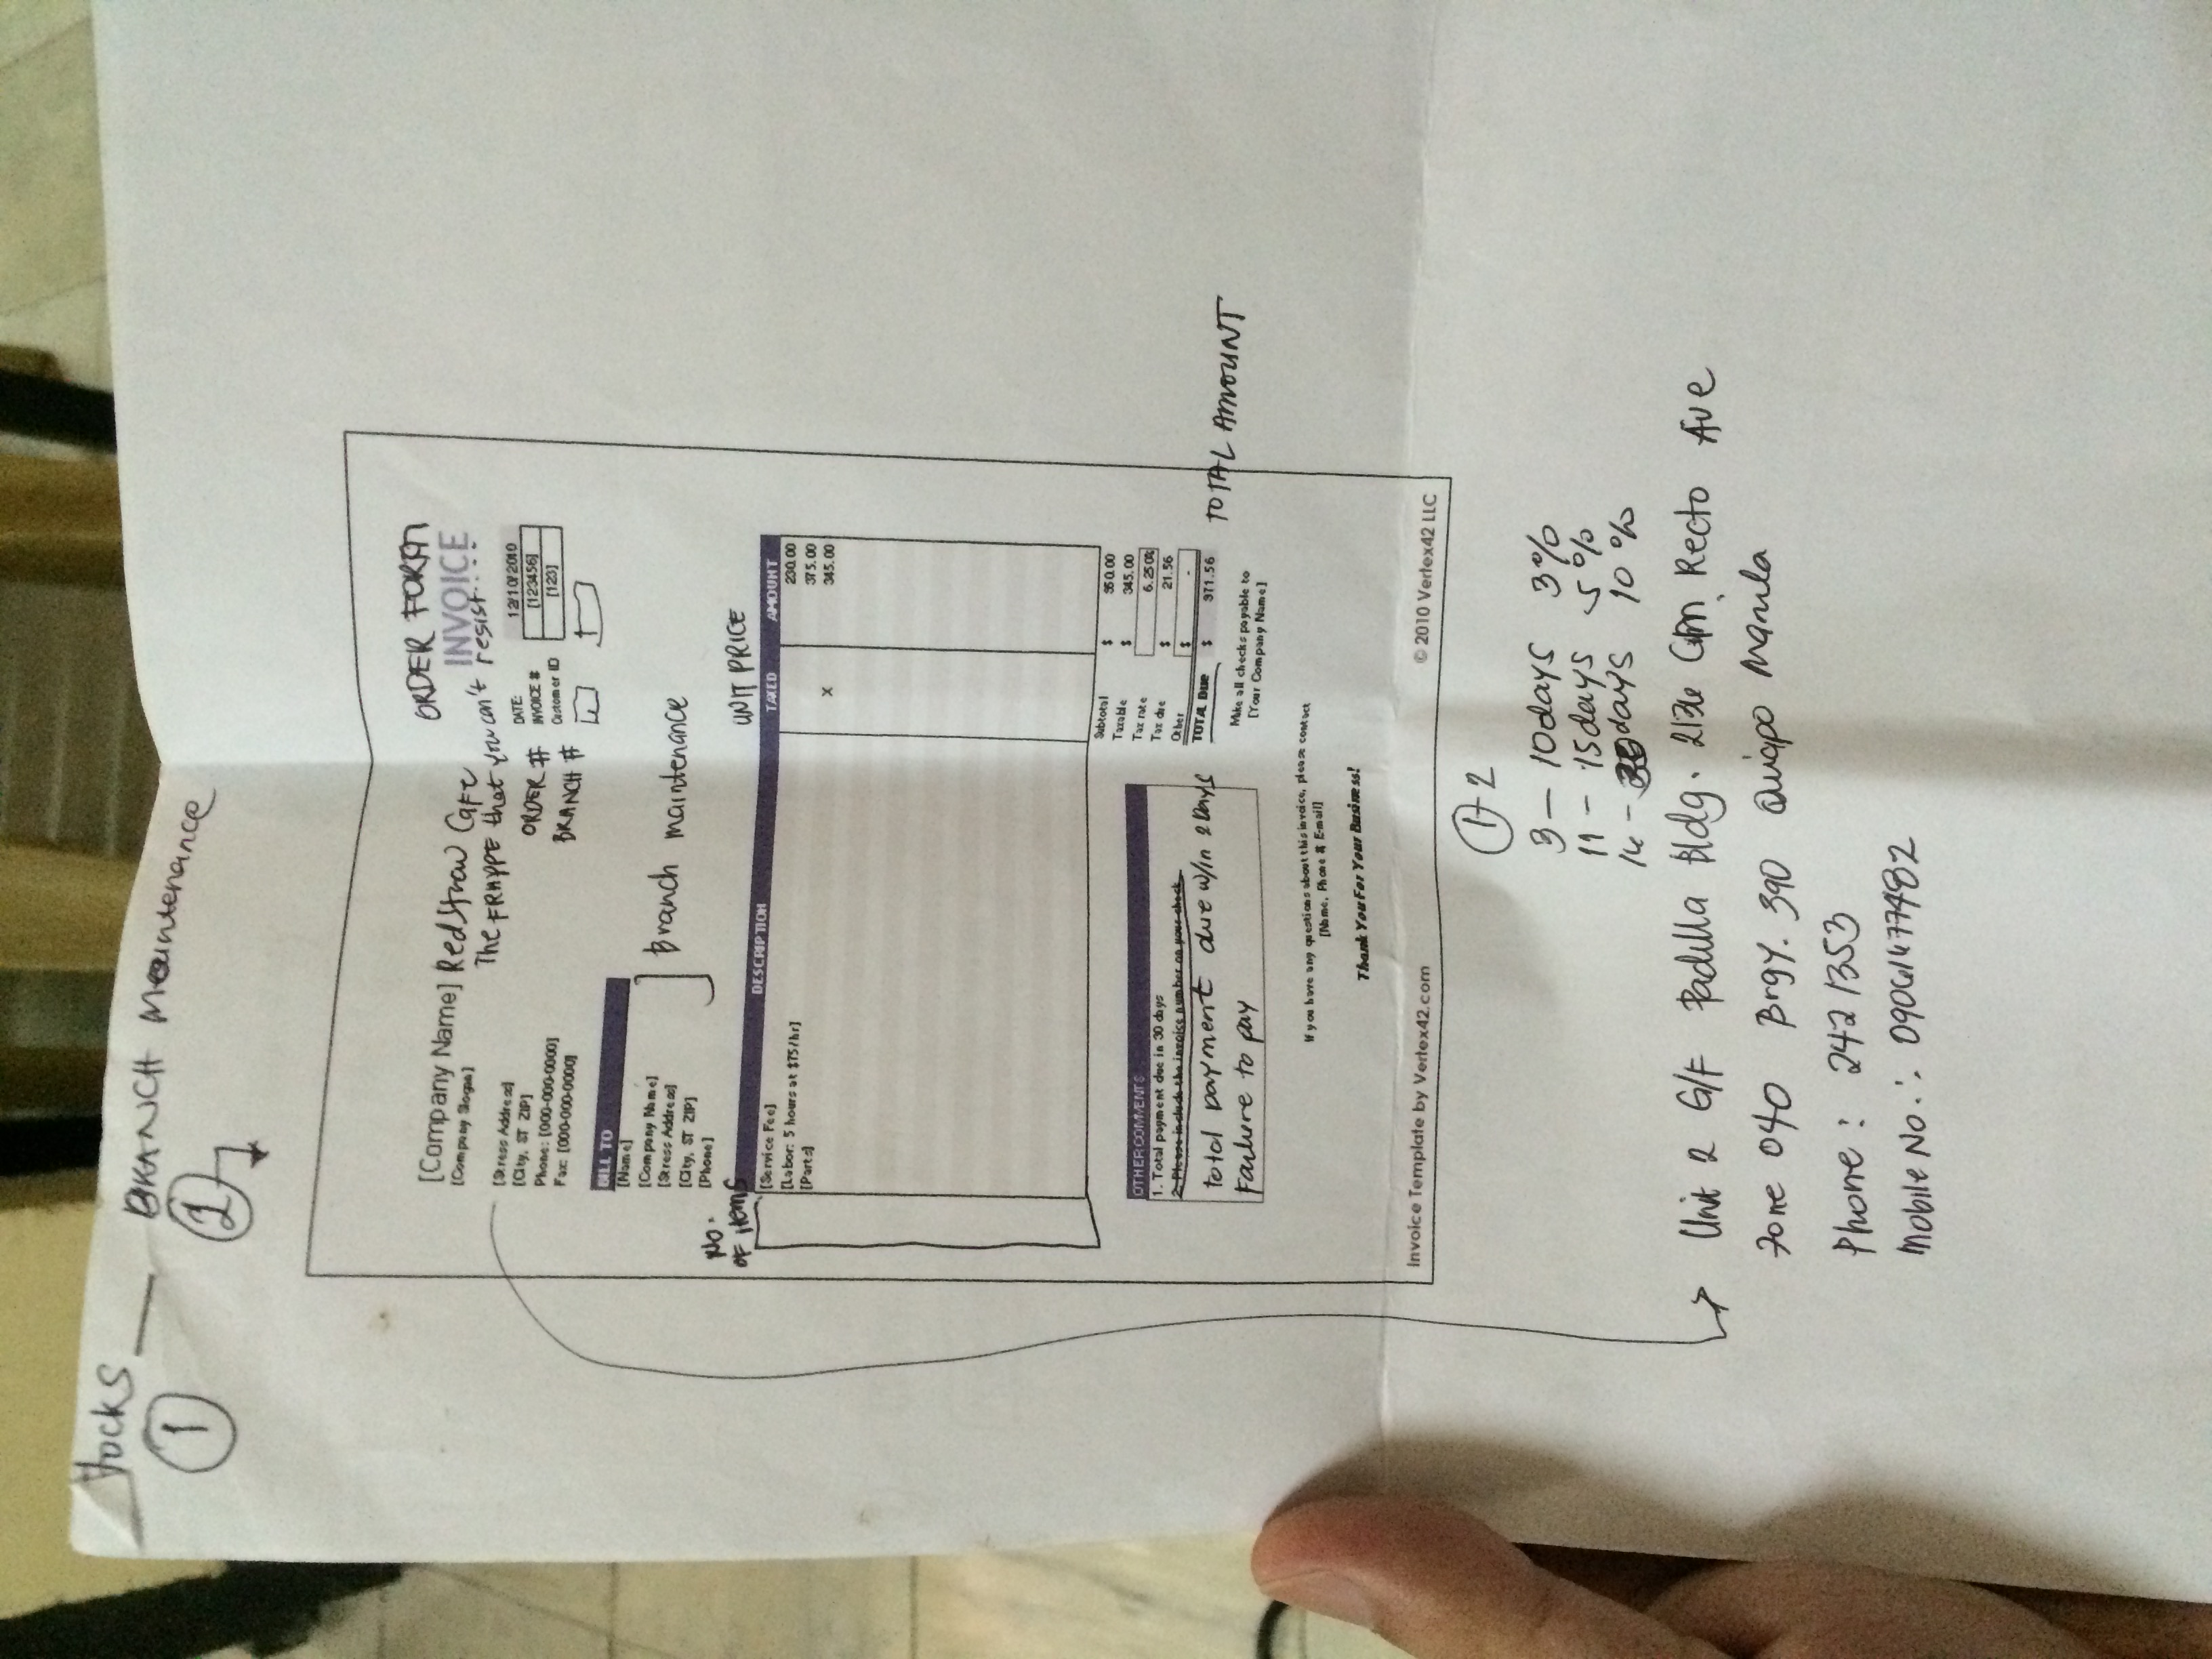 tocks
BRANCH Maintenance
1
2
ORDER FORM
[Company Name] RedStraw Cafe
INVOICE
[Company Slogan]
The FRAPPE that you can't resist....
[Stress Address]
[City, ST ZIP]
Phone: [000-000-0000]
Fax: [000-000-0000]
DATE: 12/10/2010
ORDER # INVOICE # [123456]
BRANCH # Customer ID [123]
BILL TO
[Name]
[Company Name]
[Stress Address]
[City, ST ZIP]
[Phone]
Branch maintenance
NO.
OF items
UNIT PRICE
DESCRIPTION TAXED AMOUNT
[Service Fee] 230.00
[Labor: 5 hours at $75/hr] 375.00
[Parts] X 345.00
Subtotal $ 950.00
Taxable $ 345.00
Tax rate 6.250%
Tax due $ 21.56
Other $ -
TOTAL Due $ 971.56
TOTAL AMOUNT
OTHER COMMENTS
1. Total payment due in 30 days
2. Please include the invoice number on your check
total payment due w/in 2 Days
Failure to pay
Make all checks payable to
[Your Company Name]
If you have any questions about this invoice, please contact
[Name, Phone #, E-mail]
Thank You For Your Business!
Invoice Template by Vertex42.com
© 2010 Vertex42 LLC
1-2
3 — 10 days 3%
11 - 15 days 5%
16 - days 10%
Unit 2 G/F Padilla Bldg. 2136 Recto Ave
Zone 040 Brgy. 390 Quiapo Manila
Phone: 2421353
Mobile No.: 09061677482